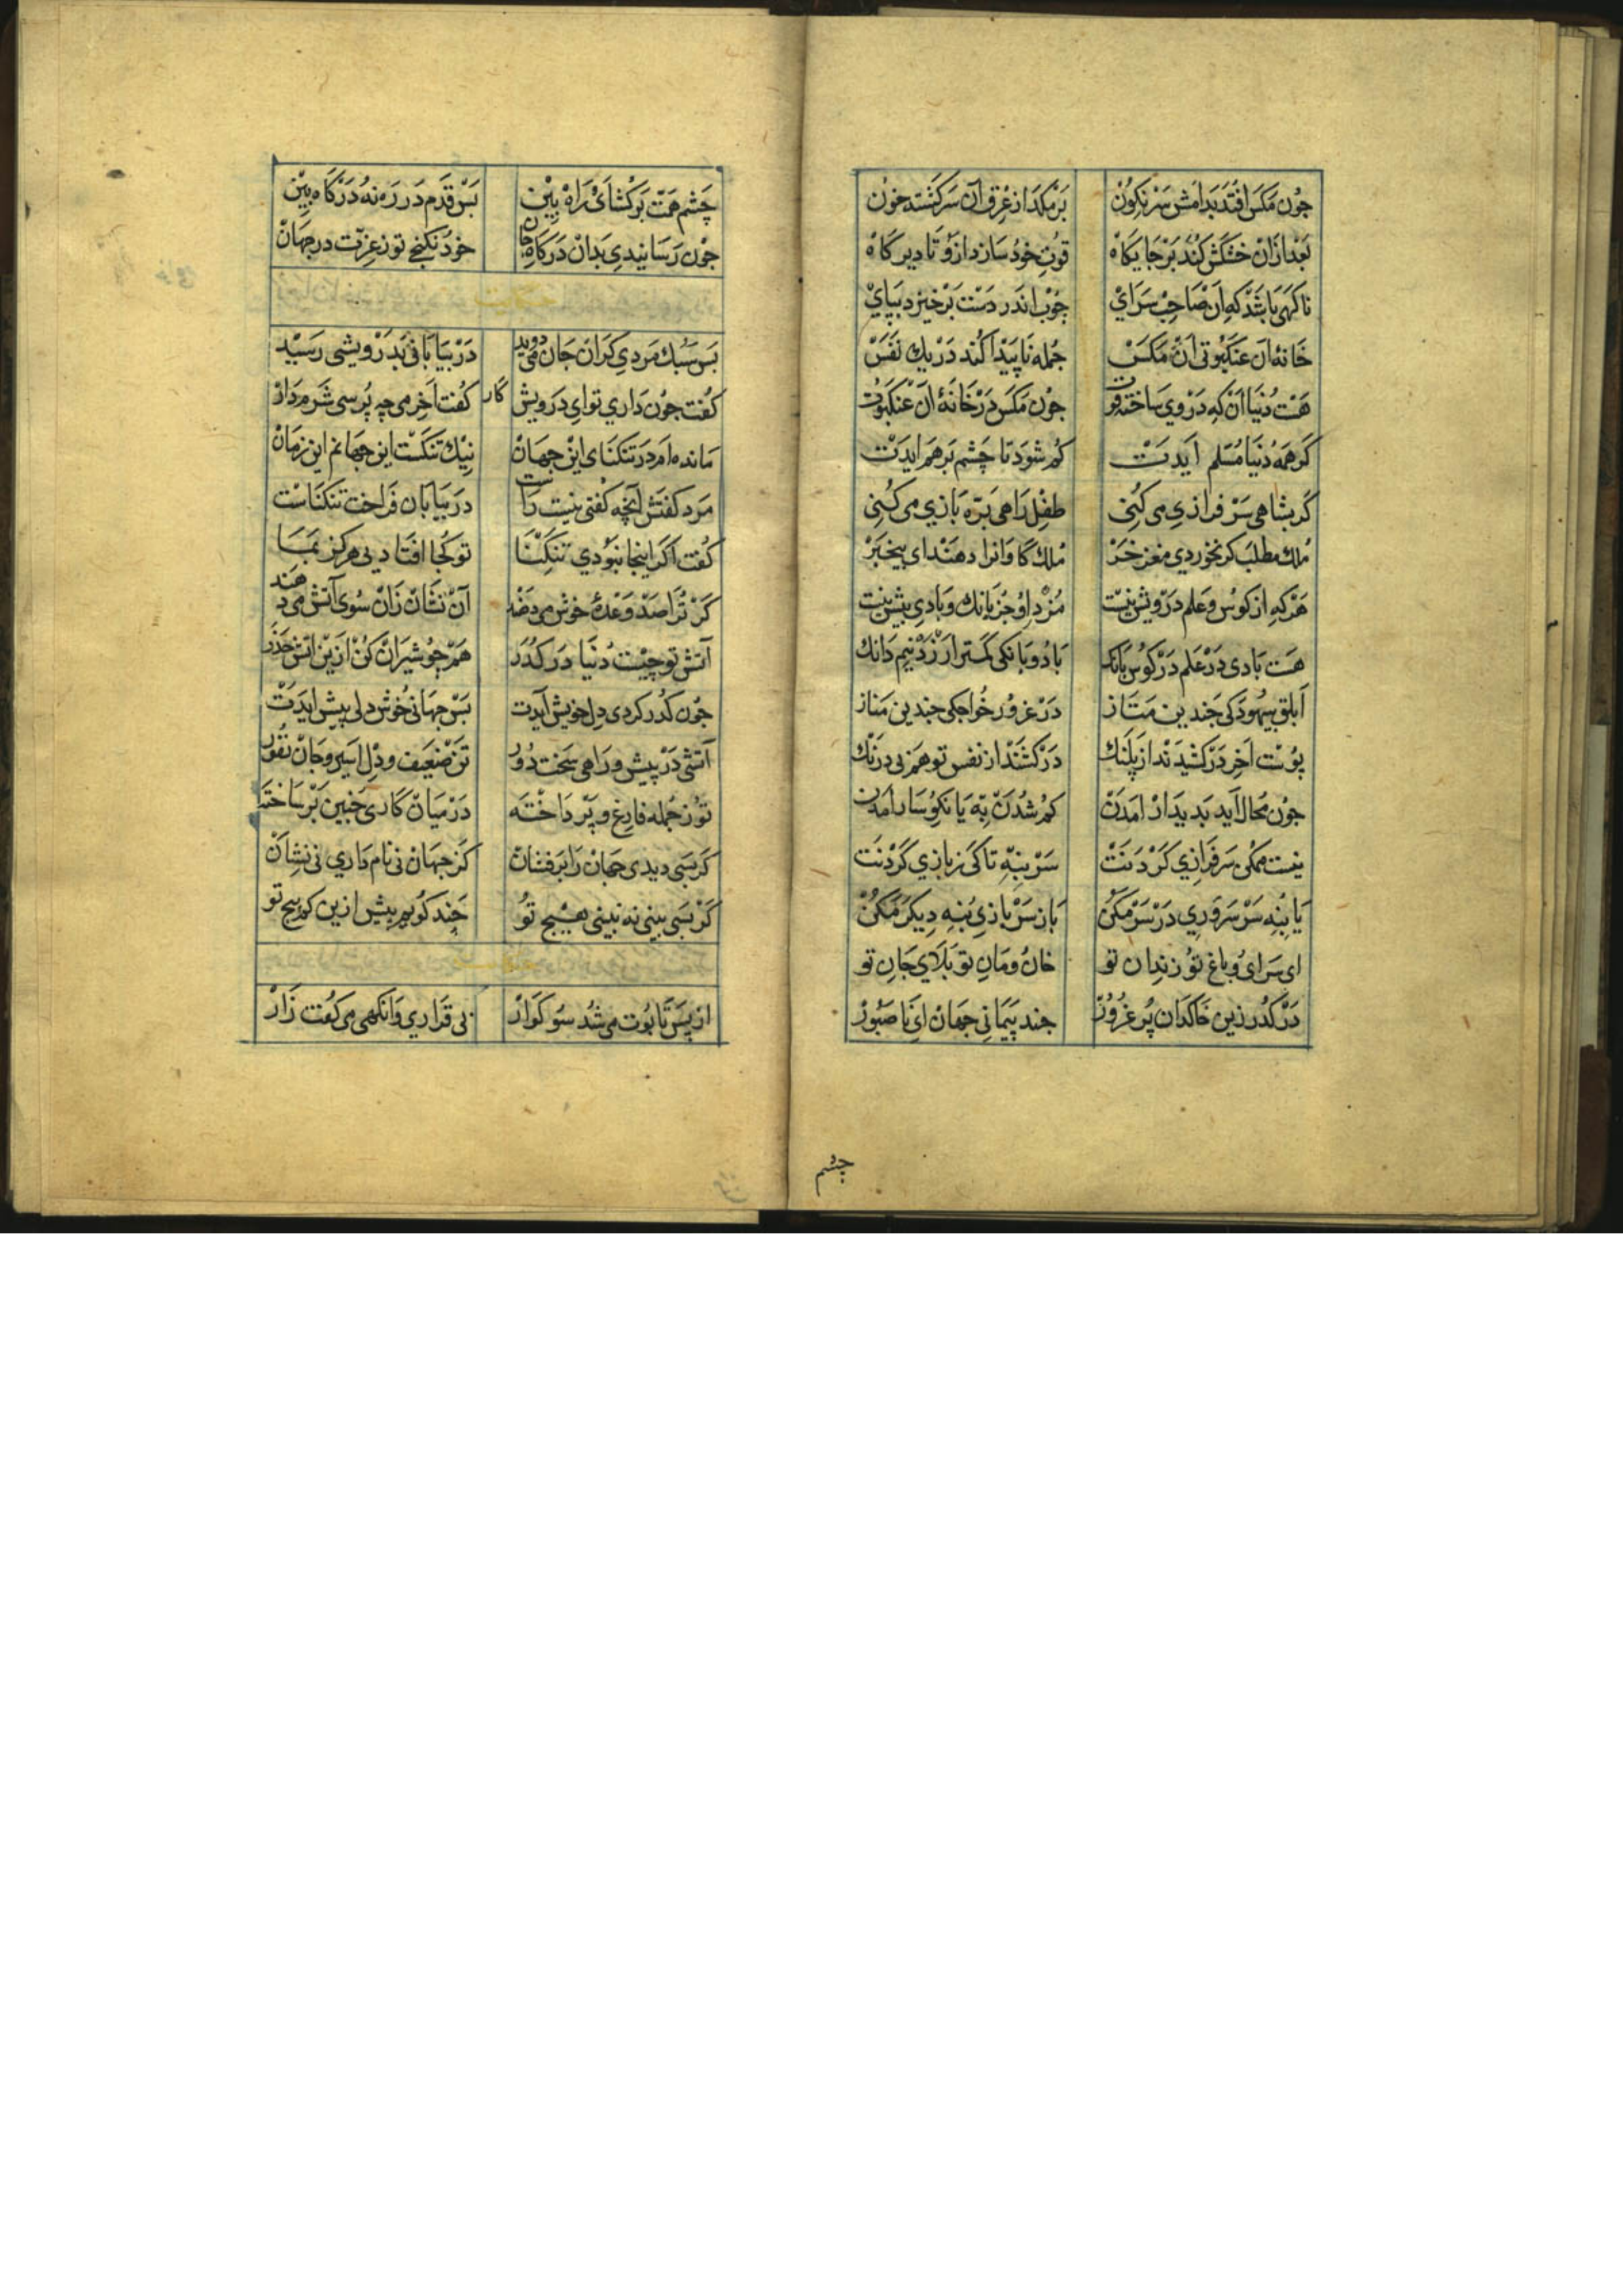 چون مکس افتد بدامش سرنکون برمکد از عرق آن سرکشته خون
بعد ازان خشکش کند بر جایکاه قوت خود سازد ازو تا دیرکاه
ناکهی باشد که آن صاحب سرای چوب اندر دست برخیزد بپای
خانهٔ آن عنکبوت آن مکس جمله ناپیدا کند در یک نفس
هست دنیا آن که در وی ساخت قوت چون مکس در خانهٔ آن عنکبوت
کر همه دنیا مسلم ایدت کم شود تا چشم برهم ایدت
کر بشاهی سرفرازی می کنی طفل راهی پرده بازی می کنی
ملک مطلب کر نخوردی مغز خر ملک کاوانرا دهند ای بیخبر
هرکه از کوس و علم درویش نیست مزد او جز بانک و بادی بیش نیست
هست بادی در علم در کوس بانک باد و بانکی کمتر ارزد نیم دانک
ابلق بیهودکی چندین متاز در غرور خواجکی چندین مناز
پوست اخر درکشیدند از پلنک درکشند از نفس تو هم بی درنک
چون محال آید بدیدار امدن کم شدن به یا نکوسار امدن
نیست ممکن سرفرازی کردنت سر بنه تا کی ز بازی کردنت
یا بنه سر سروری در سر مکن باز سربازی بنه دیکر مکن
ای سرای و باغ تو زندان تو خان و مان تو بلای جان تو
درکذر زین خاکدان پر غرور چند پیمانی جهان ای ناصبور
چشم
چشم همت برکشای و راه بین بس قدم در ره نه و درکاه بین
چون رسانیدی بدان درکاه جان خود نکنجی تو ز عزت در جهان
حکایت
بس سبک مردی کران جان می دوید در بیابانی بدرویشی رسید
کفت چون داری تو ای درویش کار کفت اخر می چه پرسی شرم دار
مانده ام در تنکنای این جهان نیک تنکست این جهانم این زمان
مرد کفتش آنچه کفتی نیست راست در بیابان فراخت تنکناست
کفت اکر اینجا نبودی تنکنا تو کجا افتادیی هرکز بما
کر ترا صد وعدهٔ خوش می دهند آن نشان زان سوی آتش می دهند
آتش تو چیست دنیا درکذر هم چو شیران کن ازین آتش حذر
چون کذر کردی دل خویش آیدت بس جهانی خوش دلی پیش ایدت
آتشی در پیش و راهی سخت دور تن ضعیف و دل اسیر و جان نفور
تو ز جمله فارغ و پرداخته در میان کاری چنین برساخته
کر بسی دیدی جهان را برفشان کز جهان نی نام داری نی نشان
کر بسی بینی نه بینی هیچ تو چند کویم بیش ازین کم پیچ تو
حکایت
از پس تابوت می شد سوکوار بی قراری وانکهی می کفت زار